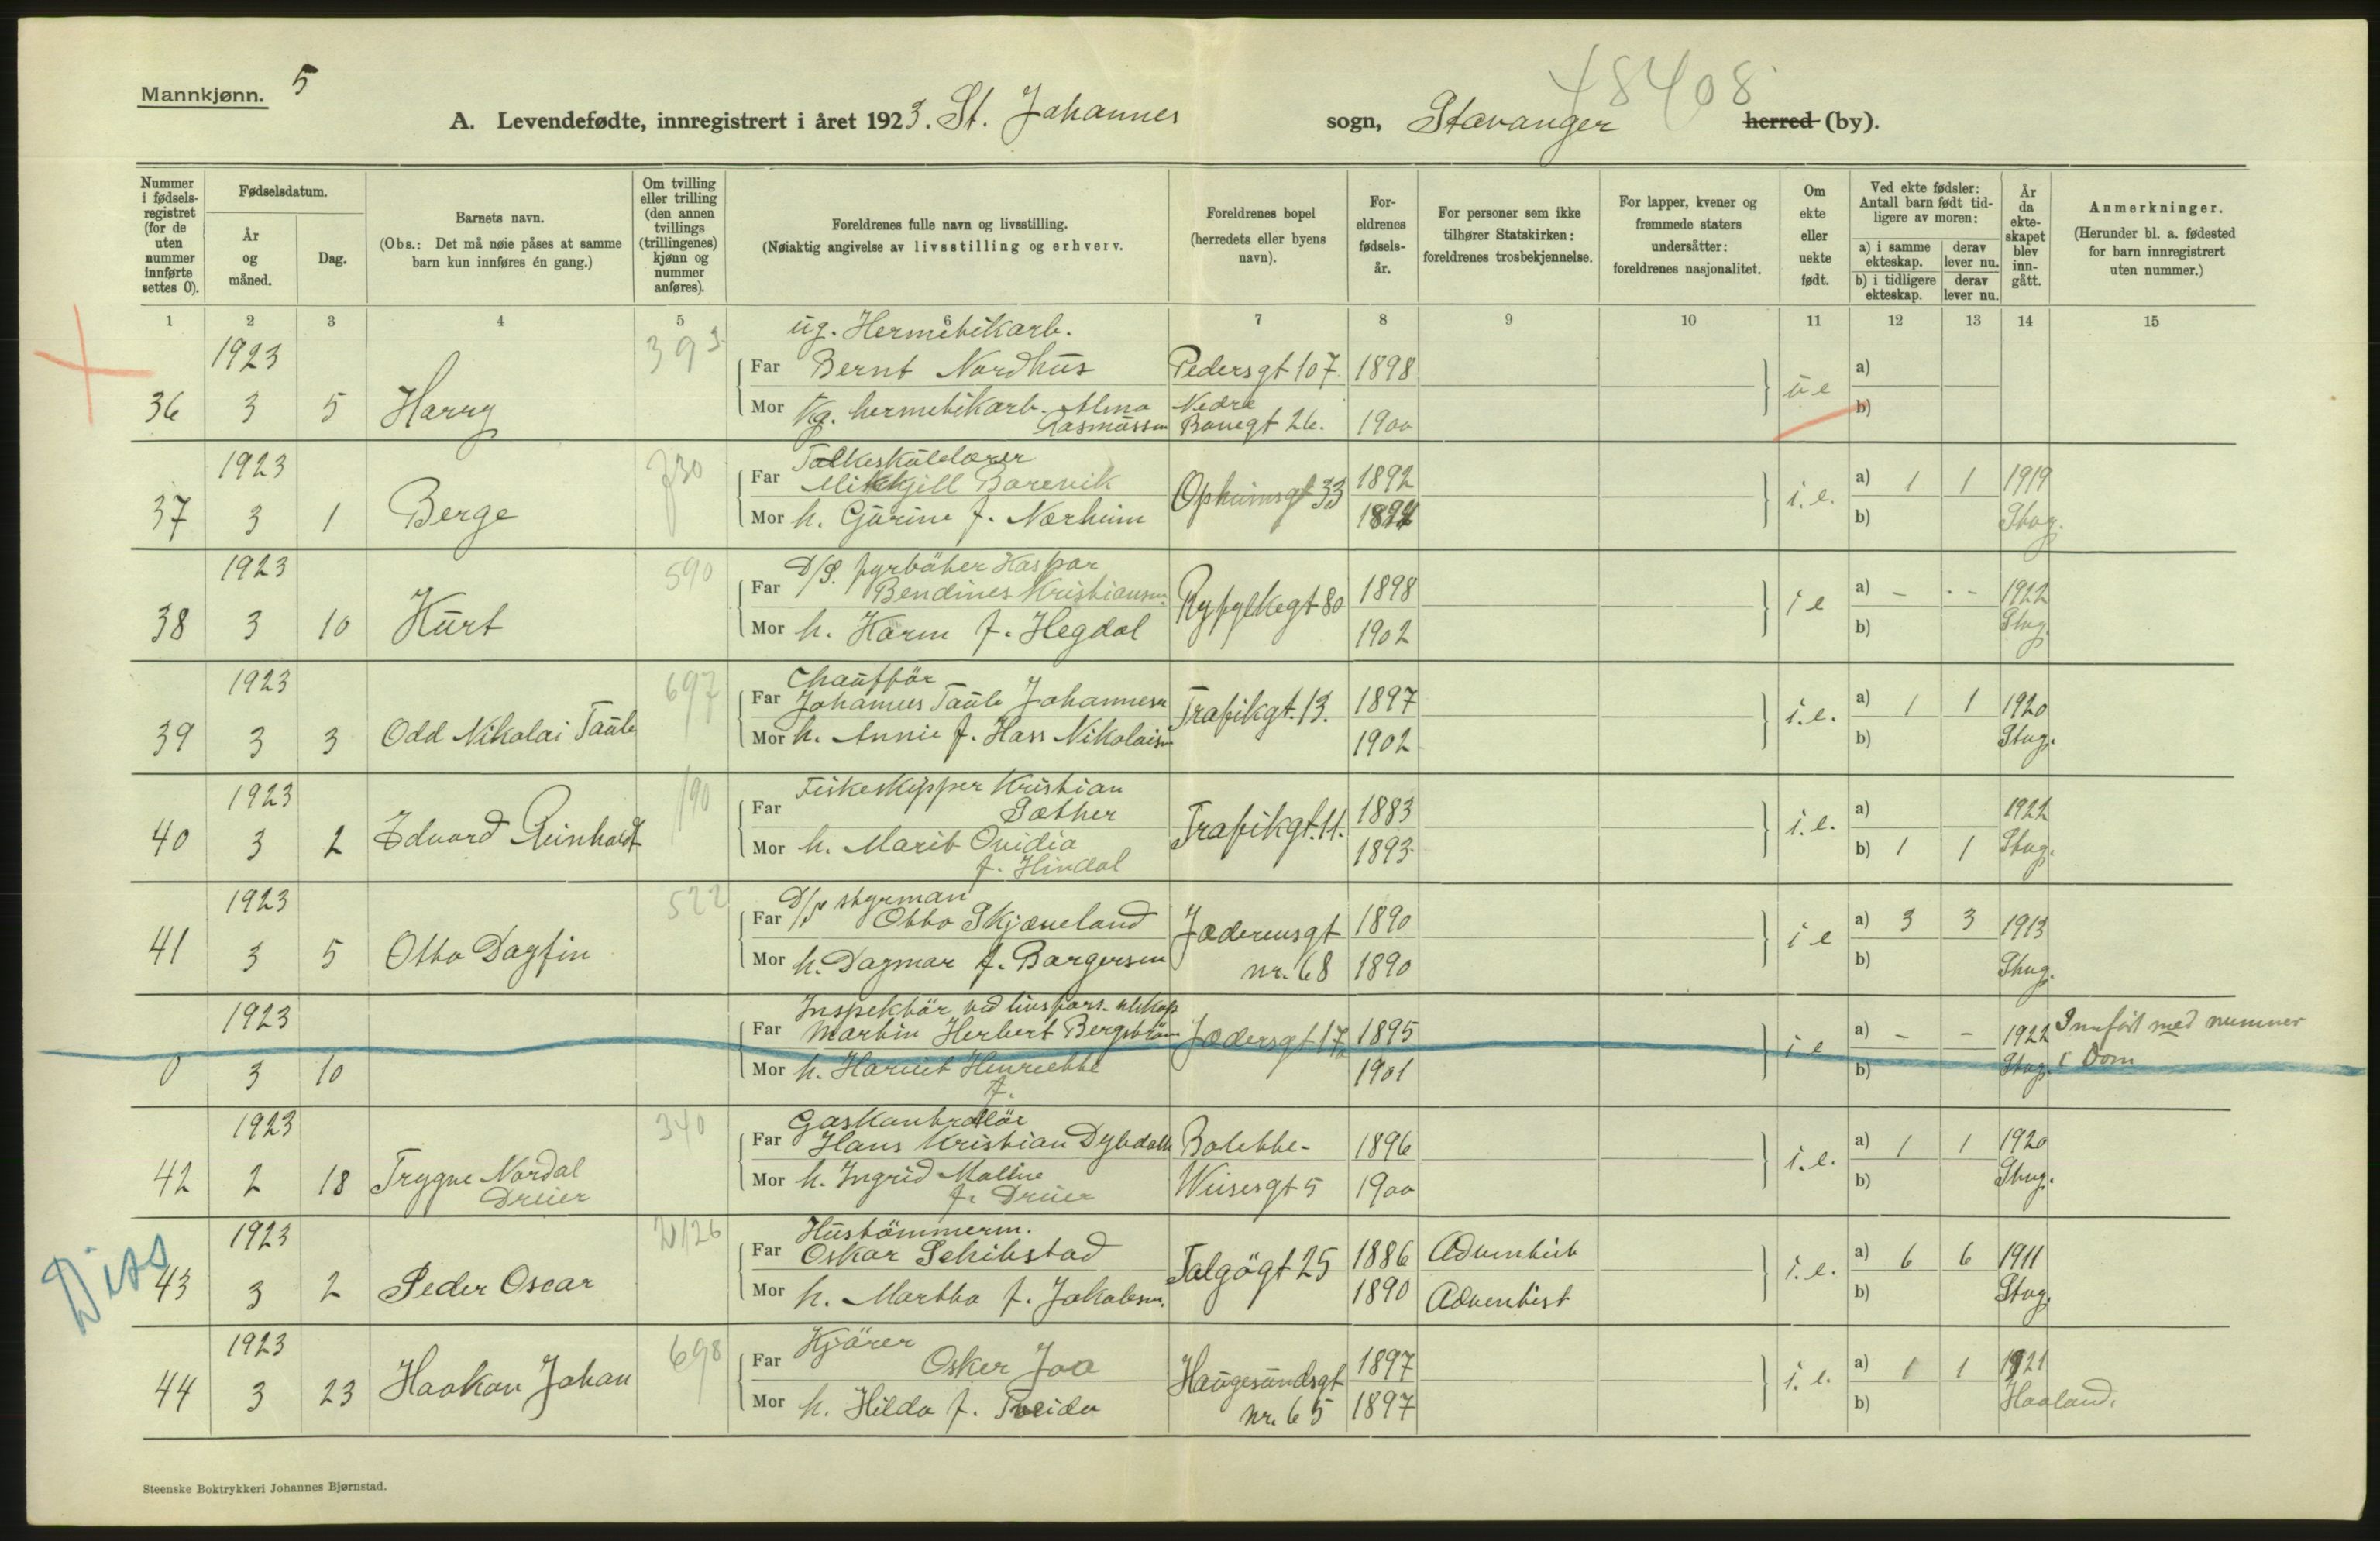 Mannkjønn. 5
48408
A. Levendefødte, innregistrert i året 1923. St. Johannes sogn, Stavanger herred (by).
Nummer i fødselsregistret (for de uten nummer innførte settes 0).
Fødselsdatum.
År og måned.
Dag.
Barnets navn.
(Obs.: Det må nøie påses at samme barn kun innføres én gang.)
Om tvilling eller trilling (den annen tvillings (trillingenes) kjønn og nummer anføres).
Foreldrenes fulle navn og livsstilling.
(Nøiaktig angivelse av livsstilling og erhverv.
Foreldrenes bopel (herredets eller byens navn).
Foreldrenes fødselsår.
For personer som ikke tilhører Statskirken: foreldrenes trosbekjennelse.
For lapper, kvener og fremmede staters undersåtter: foreldrenes nasjonalitet.
Om ekte eller uekte født.
Ved ekte fødsler: Antall barn født tidligere av moren:
a) i samme ekteskap.
derav lever nu.
b) i tidligere ekteskap.
derav lever nu.
År da ekteskapet blev inngått.
Anmerkninger.
(Herunder bl. a. fødested for barn innregistrert uten nummer.)
1 2 3 4 5 6 7 8 9 10 11 12 13 14 15
1923 393 ug. Hermetikarb.
Far Bernt Nordhus Pedersgt 107 1898 a)
36 3 5 Harry ue
Mor Kg. hermetikarb. Alma Rasmussen Nedre Banegt 26. 1900 b)
1923 730 Folkeskulelærer
Far Mikkjell Barevik 1892 a) 1 1 1919
37 3 1 Berge i.e.
Mor h. Gurine f. Nærheim b) Stvg.
1923 590 D/S. fyrbøter Kaspar
Far Bendines Kristiansen Ryfylkegt 80 1898 a) - - - 1922
38 3 10 Kurt i e
Mor h. Karen f. Hegdal 1902 b) Stvg.
1923 697 Chauffør
Far Johannes Taule Johannesen Trafikgt. 13. 1897 a) 1 1 1920
39 3 3 Odd Nikolai Taule i.e.
Mor h. Annie f. Hass Nikolaisen 1902 b) Stvg.
1923 190 Fiskeskipper Kristian
Far Sæther Trafikgt. 11. 1883 a) 1922
40 3 2 Edvard Reinholdt i.e.
Mor h. Marit Ovidia 1893 b) 1 1 Stvg.
f. Hindal
1923 522 D/S styrman
Far Otto Skjæveland Jæderensgt 1890 a) 3 3 1913
41 3 5 Otto Dagfin i e
Mor h. Dagmar f. Børgersen nr. 68 1890 b) Stvg.
1923 Inspektør ved livsfors. selskap
Far Martin Herbert Bergstrøm Jædersgt 17 1895 a) - - 1922 Innført med nummer
0 3 10 i e i Dom
Mor h. Harriet Henriette 1901 b) Stvg.
f.
1923 340 Gaskontrollør
Far Hans Kristian Dybdahl Bolette- 1896 a) 1 1 1920
42 2 18 Trygve Nordal Dreier i.e.
Mor h. Ingrid Malline Wiisesgt 5 1900 b) Stvg.
f. Dreier
Diss
1923 Hustømmerm.
Far Oskar Schibstad Talgøgt 25 1886 Adventist a) 6 6 1911
43 3 2 Peder Oscar i.e.
Mor h. Martha f. Jakobsen. 1890 Adventist b) Stvg.
1923 698 Kjører
Far Osker Joa Haugesundsgt 1897 a) 1 1 1921
44 3 23 Haakon Johan i.e.
Mor h. Hilda f. Tveida nr. 65 1897 b) Haaland.
Steenske Boktrykkeri Johannes Bjørnstad.